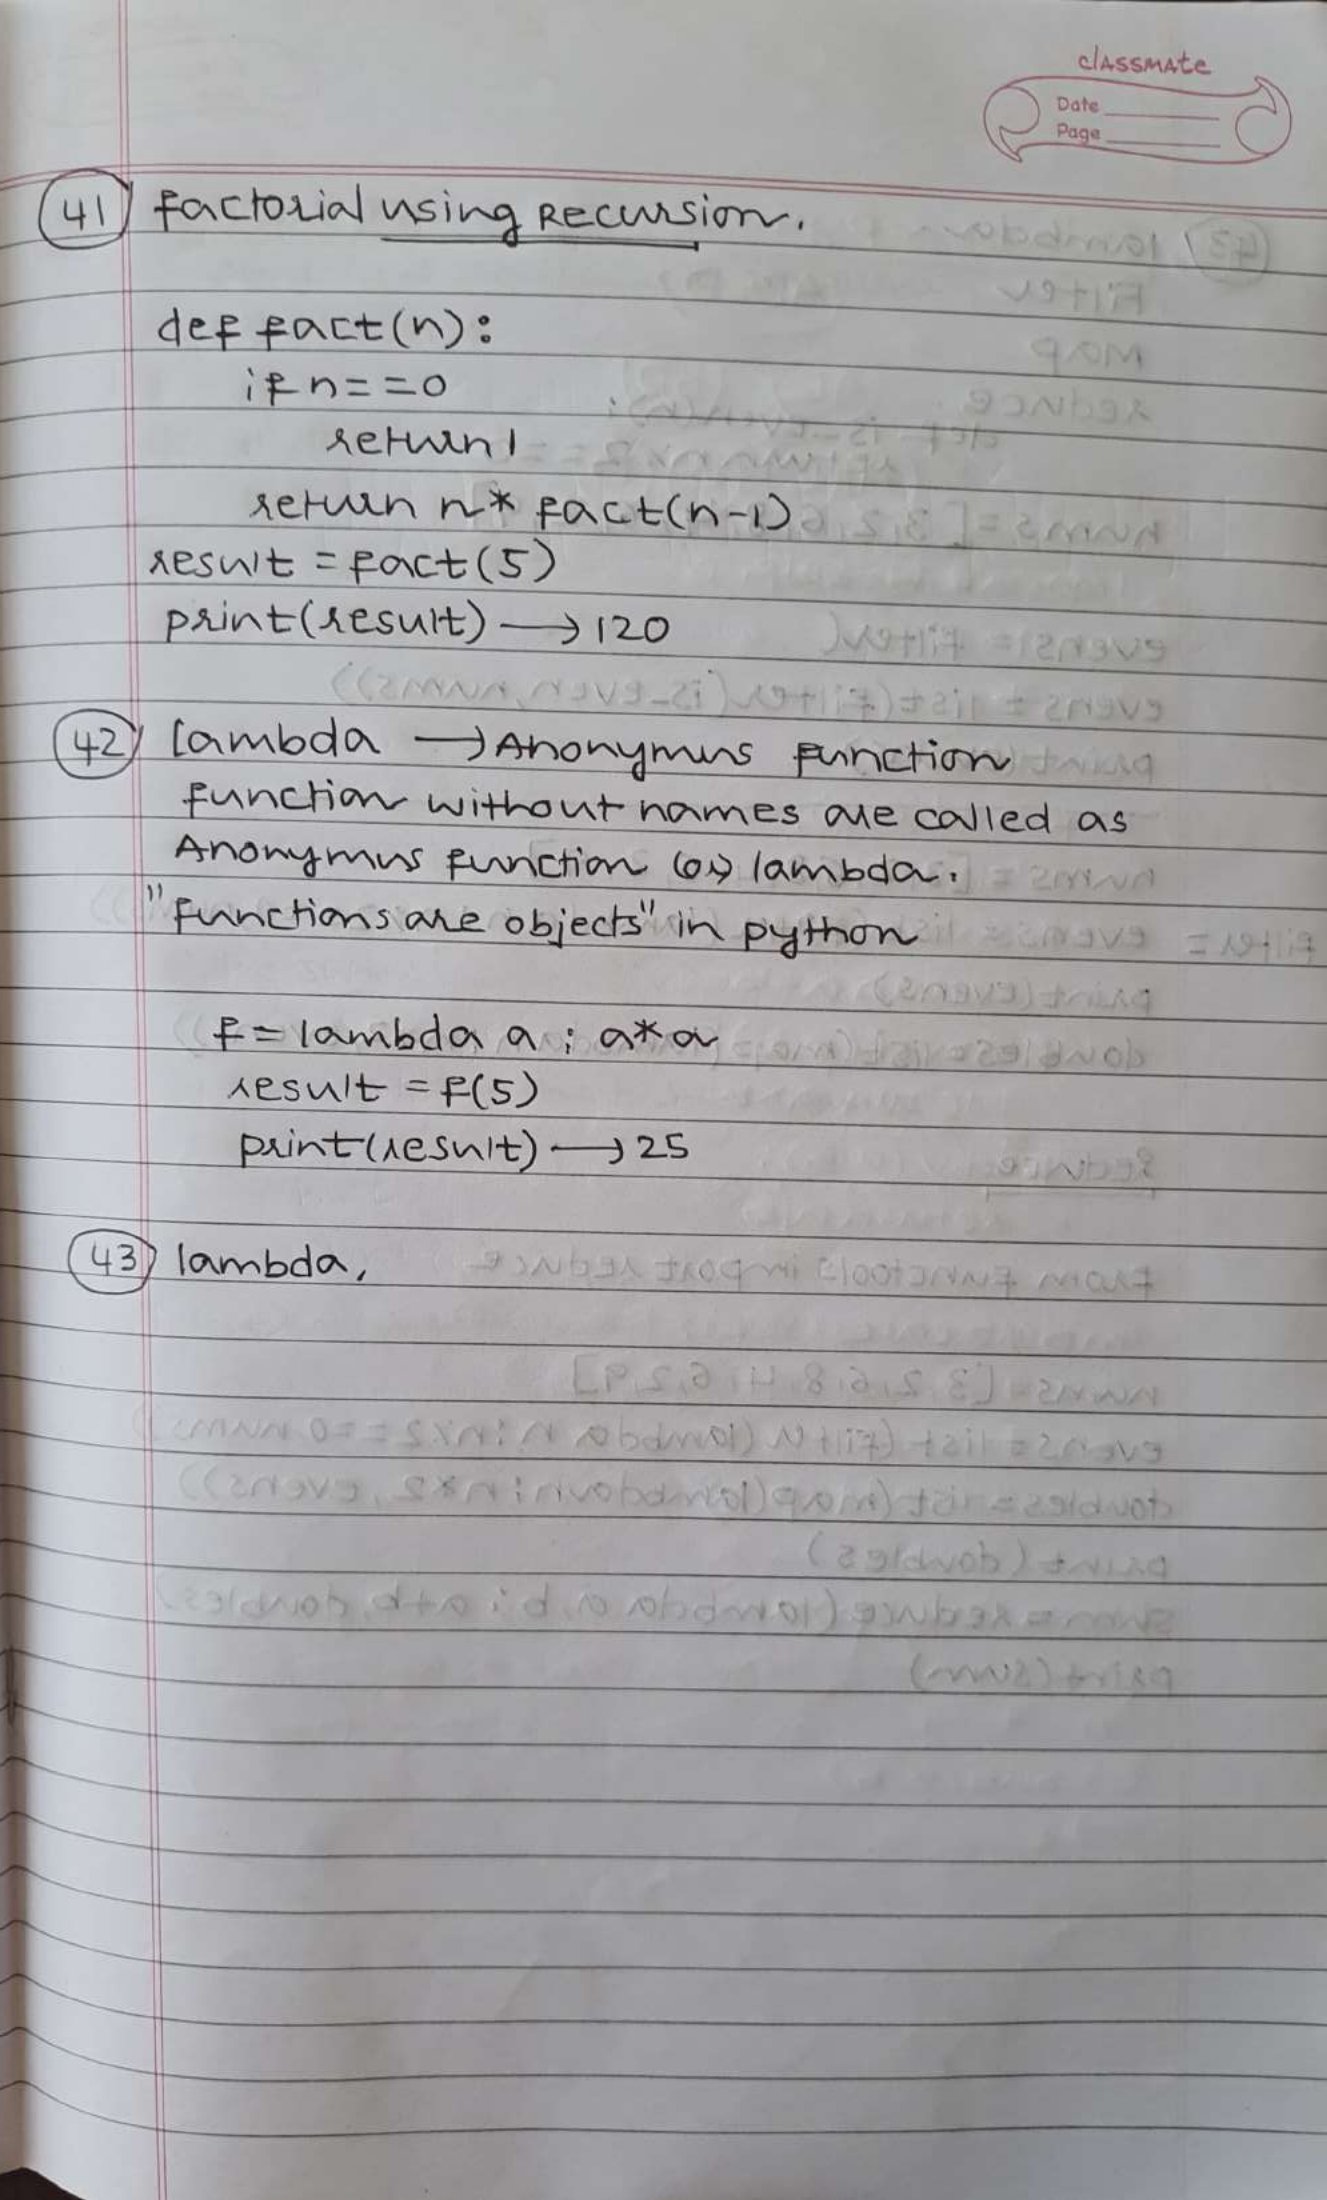 classmate
Date
Page
41 factorial using Recursion.
def fact(n):
if n==0
return 1
return n* fact(n-1)
result = fact(5)
print(result) → 120
42 lambda → Anonymus function
function without names are called as
Anonymus function (or) lambda.
"functions are objects" in python
f = lambda a ; a*a
result = f(5)
print(result) → 25
43 lambda,